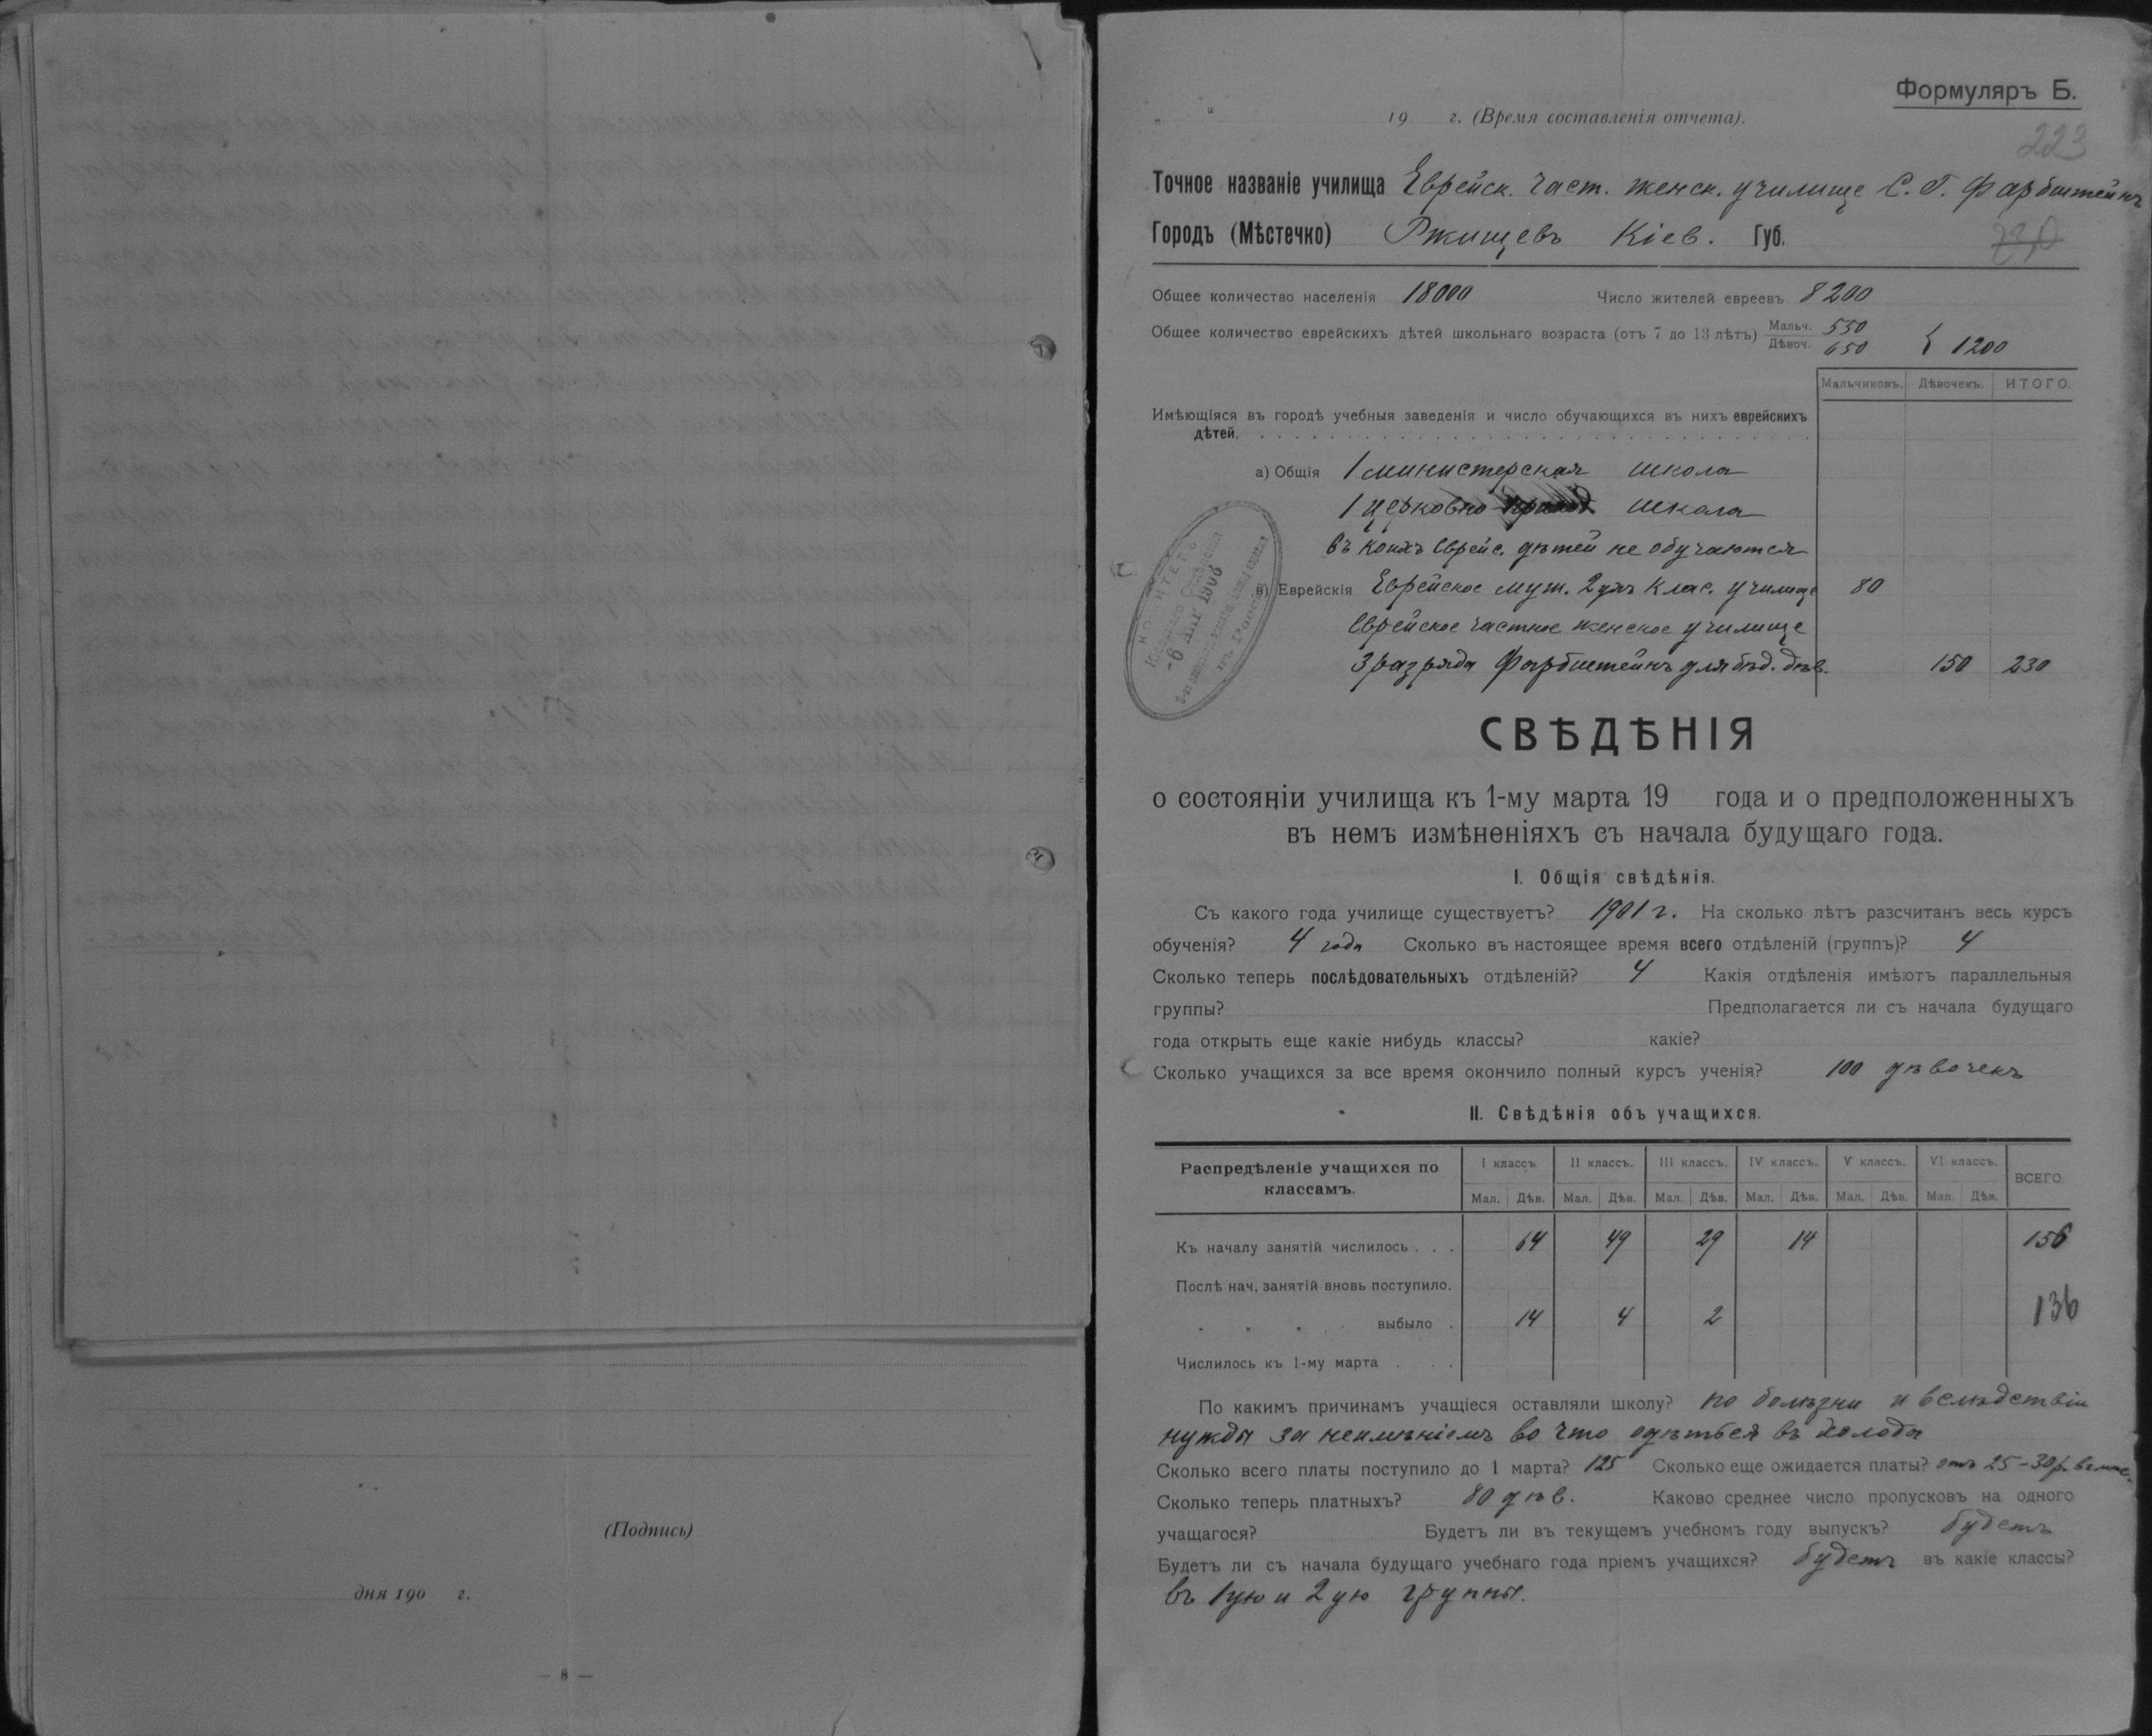 (Подпись)
дня 190 г.
— 8 —
Формуляръ Б.
„ “ 19 г. (Время составленія отчета).
223
Точное названіе училища Еврейск. част. женск. училище С. Г. Фарбштейнъ
Городъ (Мѣстечко) Ржищевъ Кіев. Губ.
Общее количество населенія 18000 Число жителей евреевъ 8200
Общее количество еврейскихъ дѣтей школьнаго возраста (отъ 7 до 13 лѣтъ) Мальч. 550
Дѣвоч. 650 } 1200
Мальчиковъ. Дѣвочекъ. ИТОГО.
Имѣющіяся въ городѣ учебныя заведенія и число обучающихся въ нихъ еврейскихъ
дѣтей.
а) Общія 1 министерская школа
1 церковно школа
въ коихъ еврейс. дѣтей не обучаются
в) Еврейскія Еврейское муж. 2ухъ клас. училище 80
Еврейское частное женское училище
3 разряда Фарбштейнъ для бѣд. дѣв. 150 230
КОМИТЕТЪ
-6 МАР 1906
СВѢДѢНІЯ
о состояніи училища къ 1-му марта 19 года и о предположенныхъ
въ немъ измѣненіяхъ съ начала будущаго года.
I. Общія свѣдѣнія.
Съ какого года училище существуетъ? 1901 г. На сколько лѣтъ разсчитанъ весь курсъ
обученія? 4 года Сколько въ настоящее время всего отдѣленій (группъ)? 4
Сколько теперь послѣдовательныхъ отдѣленій? 4 Какія отдѣленія имѣютъ параллельныя
группы? Предполагается ли съ начала будущаго
года открыть еще какіе нибудь классы? какіе?
Сколько учащихся за все время окончило полный курсъ ученія? 100 дѣвочекъ
II. Свѣдѣнія объ учащихся.
Распредѣленіе учащихся по классамъ. I классъ. II классъ. III классъ. IV классъ. V классъ. VI классъ. ВСЕГО
Мал. Дѣв. Мал. Дѣв. Мал. Дѣв. Мал. Дѣв. Мал. Дѣв. Мал. Дѣв.
Къ началу занятій числилось . . . 64 49 29 14 156
Послѣ нач. занятій вновь поступило.
„ „ „ выбыло . 14 4 2 136
Числилось къ 1-му марта . . . .
По какимъ причинамъ учащіеся оставляли школу? по болѣзни и вслѣдствіи
нужды за неимѣніемъ во что одѣться въ холода
Сколько всего платы поступило до 1 марта? 125 Сколько еще ожидается платы? отъ 25-30 р. въ мѣс.
Сколько теперь платныхъ? 80 дѣв. Каково среднее число пропусковъ на одного
учащагося? Будетъ ли въ текущемъ учебномъ году выпускъ? будетъ
Будетъ ли съ начала будущаго учебнаго года пріемъ учащихся? будетъ въ какіе классы?
въ 1ую и 2ую группы.